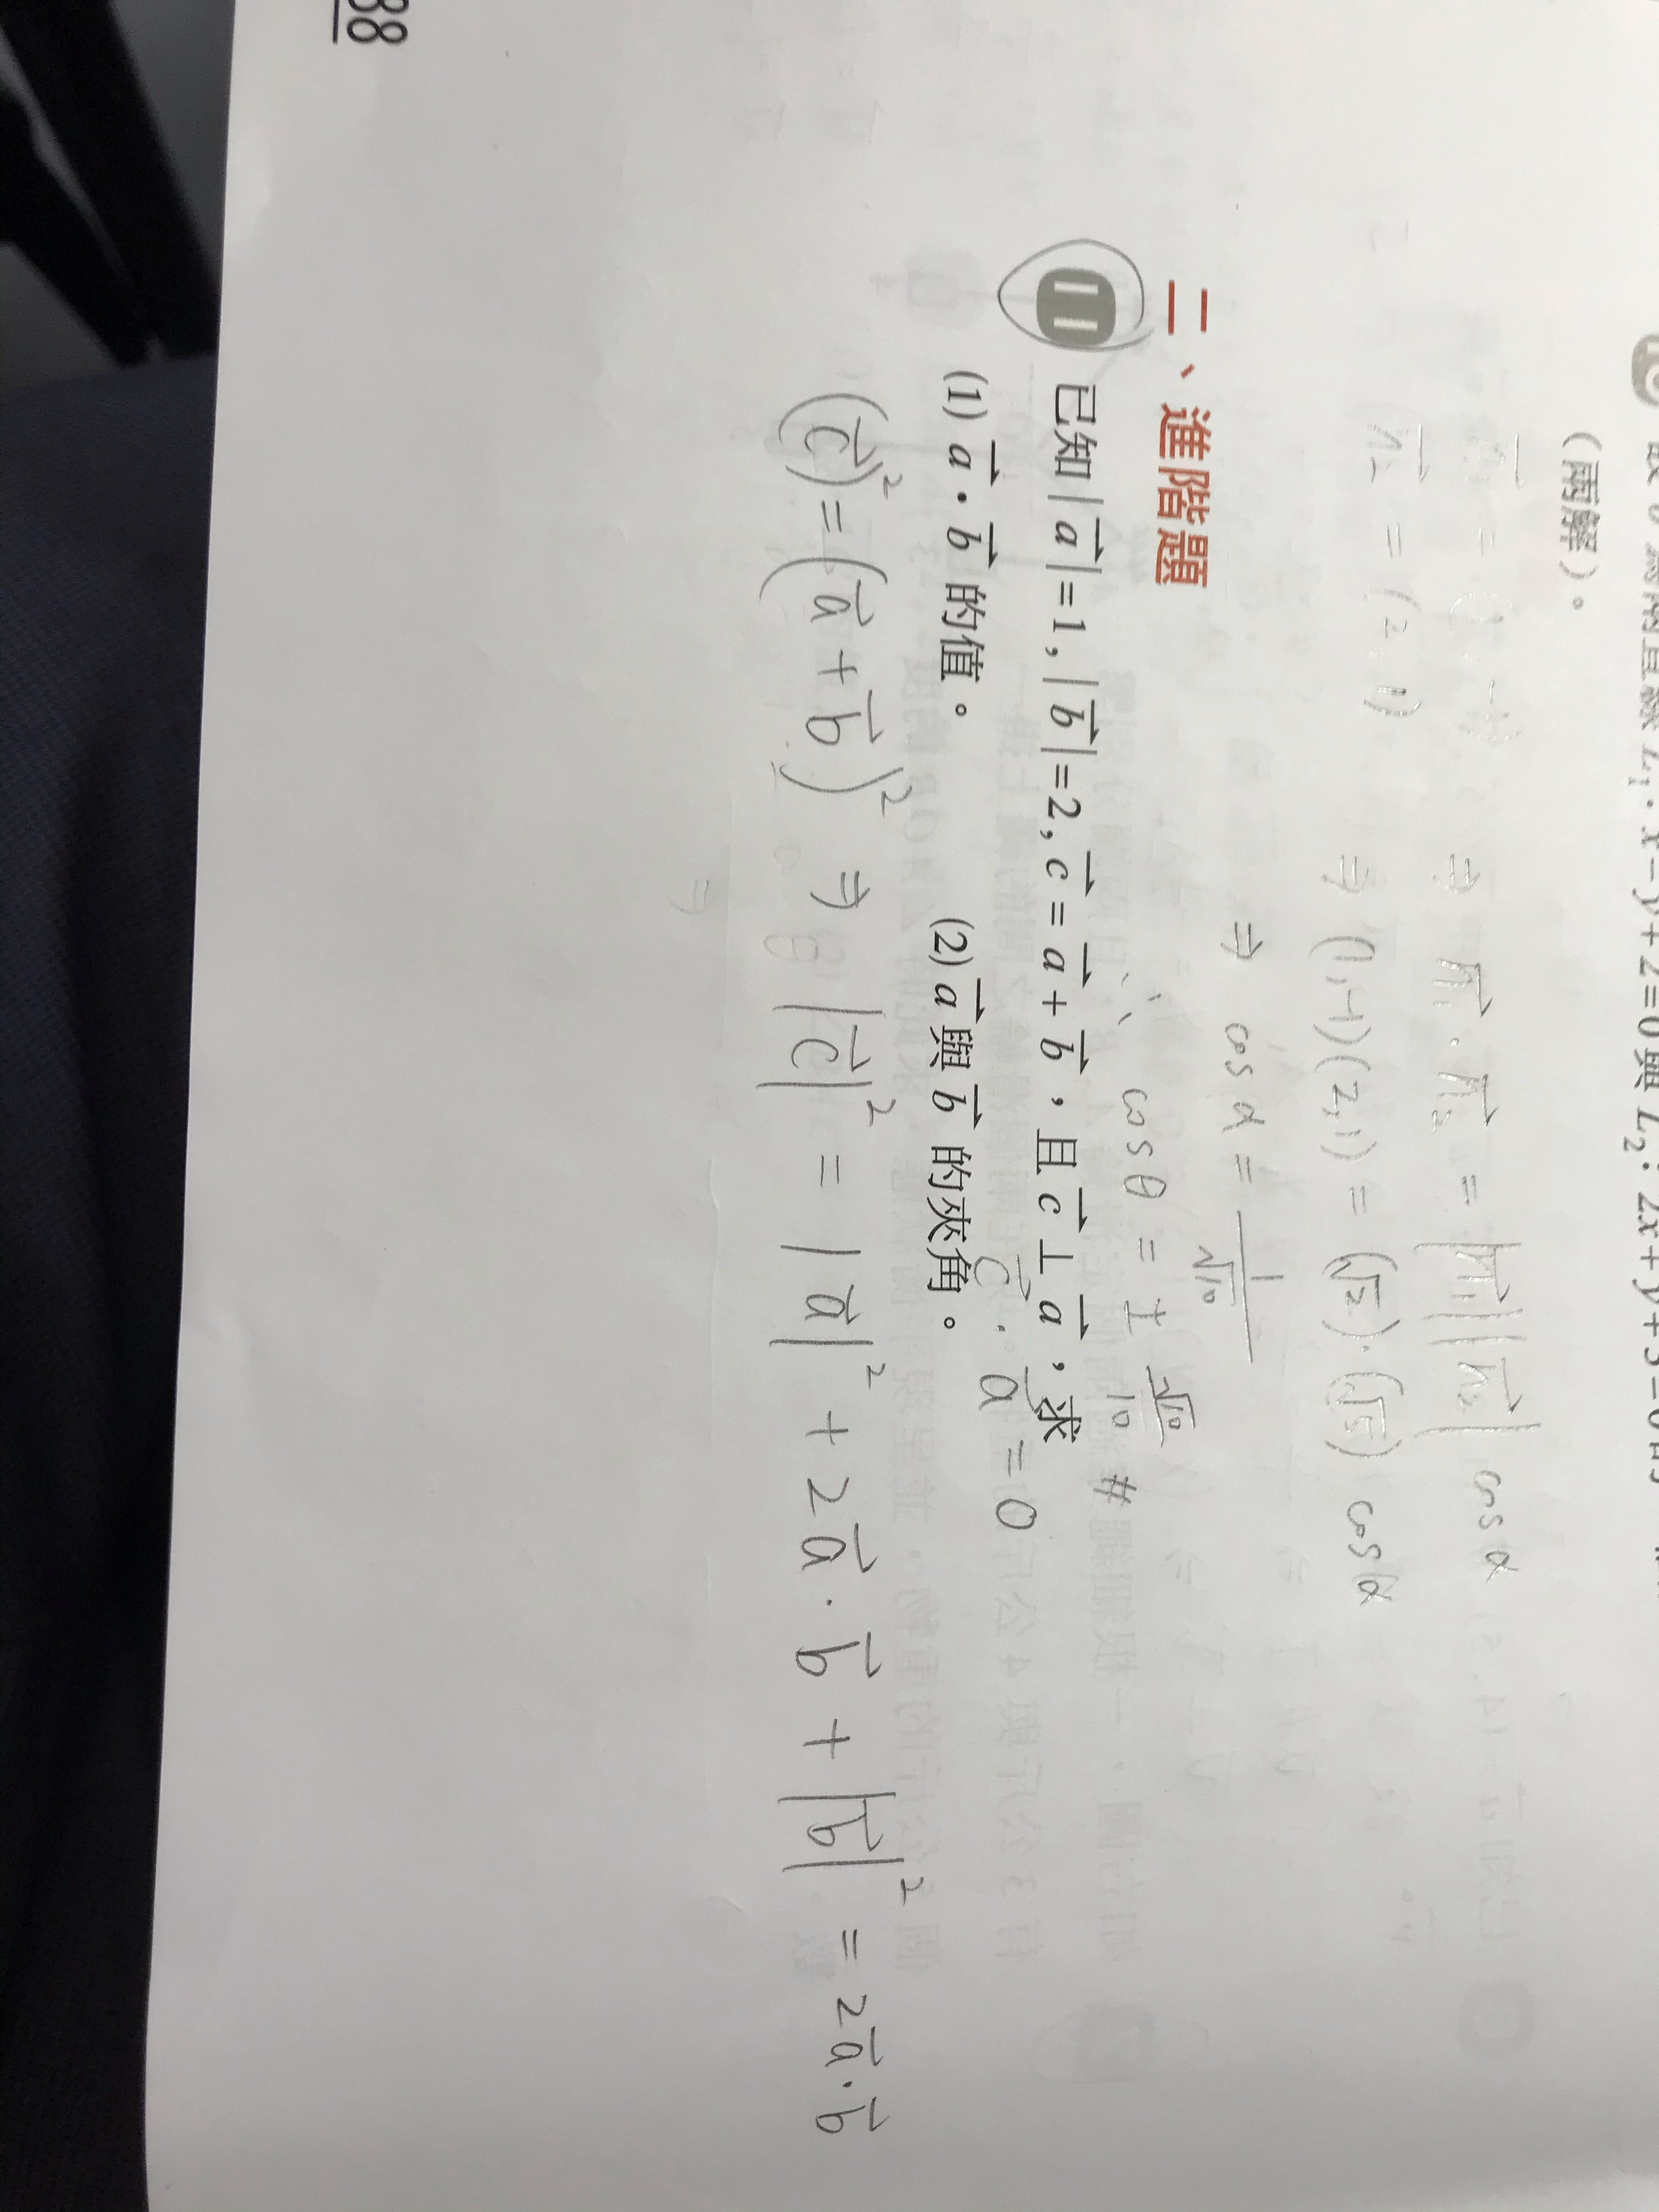 L₁: x−y+2=0與 L₂: 2x+y+5=0
(兩解)。
⇒ n₁⃗ · n₂⃗ = |n₁⃗||n₂⃗| cosα
n₂⃗ = (2, 1) ⇒ (1,-1)(2,1) = (√2)·(√5) cosα
⇒ cosα = 1/√10
∴ cosθ = ± √10/10 #
二、進階題
11 已知|a⃗|=1,|b⃗|=2, c⃗=a⃗+b⃗,且c⃗⊥a⃗,求
c⃗·a⃗=0
(1) a⃗·b⃗ 的值。 (2) a⃗與b⃗ 的夾角。
(c⃗)²=(a⃗+b⃗)² ⇒ |c⃗|² = |a⃗|² + 2a⃗·b⃗ + |b⃗|² = 2a⃗·b⃗
⇒
88